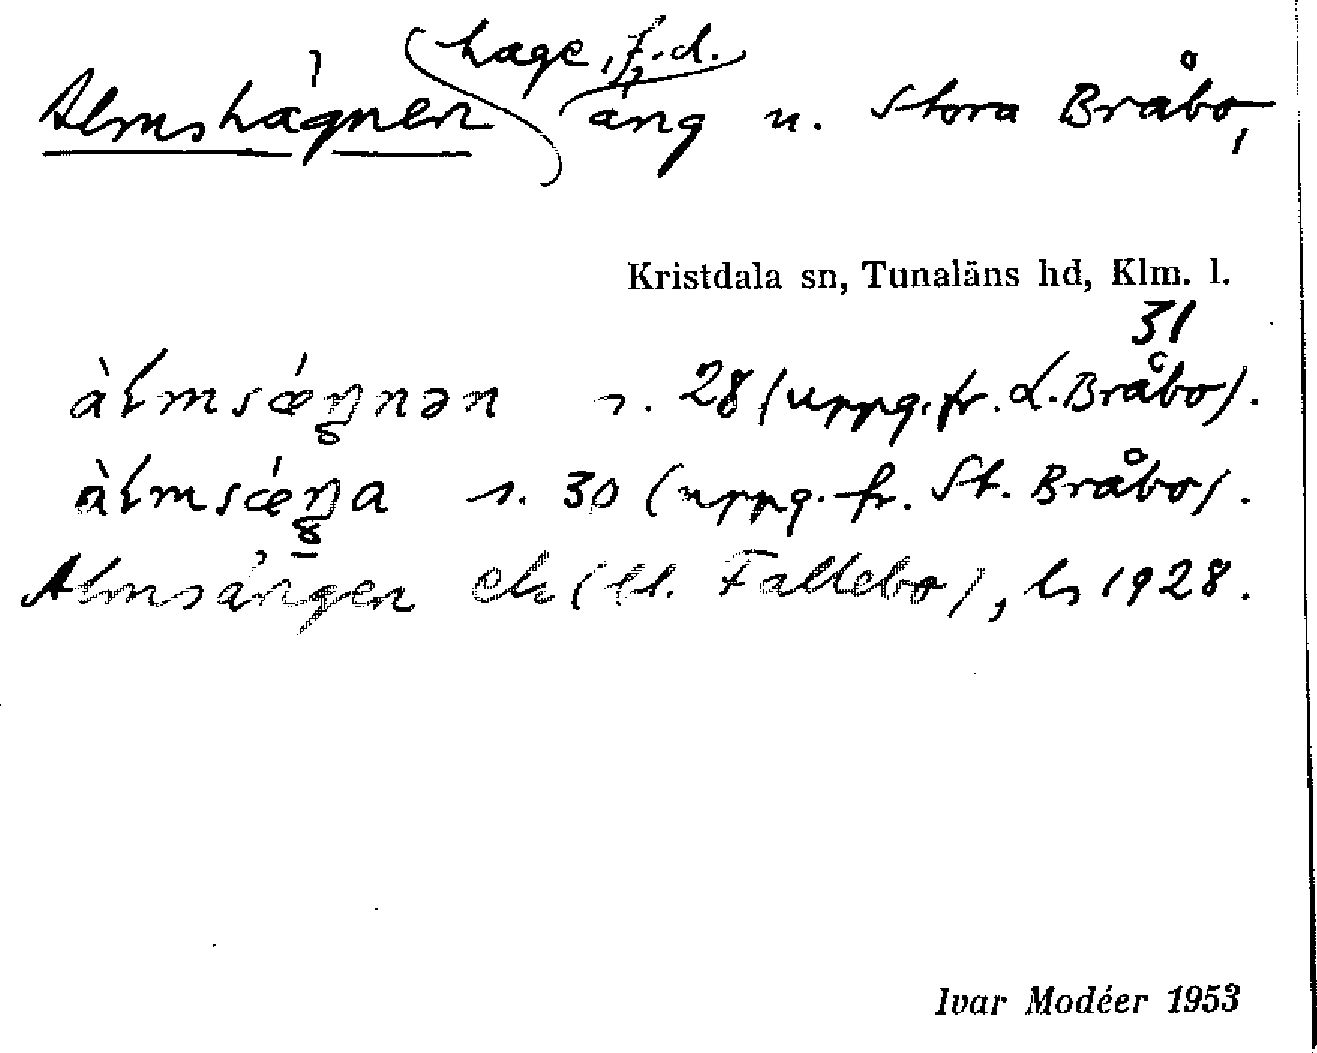 Almshägnen hage, f.d. äng u. Stora Bråbo,
Kristdala sn, Tunaläns hd, Klm. l.
31
àlmsǽŋnən s. 28 (uppg. fr. L. Bråbo).
àlmsǽŋa s. 30 (uppg. fr. St. Bråbo).
Almsängen ek (Ll. Fallebo), ls 1928.
Ivar Modéer 1953